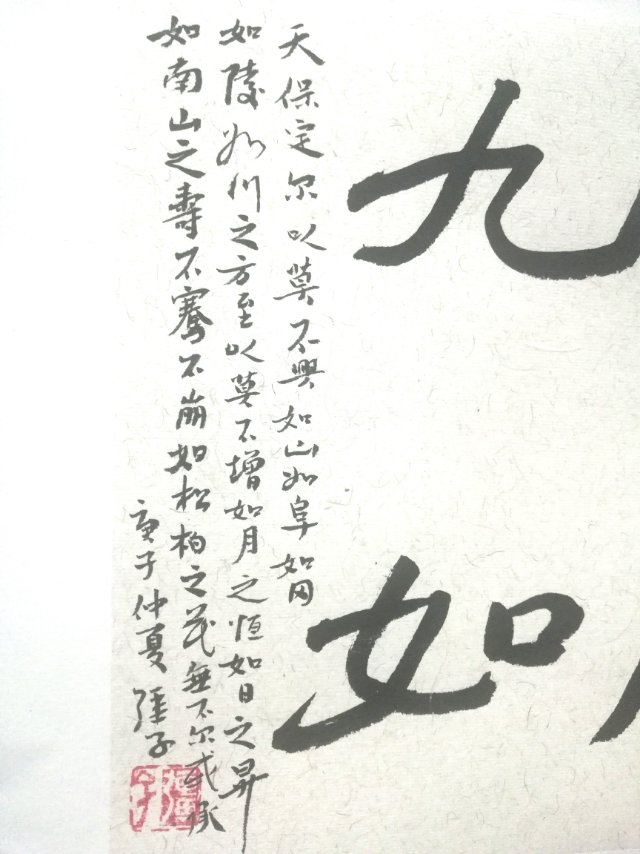 九如
天保定尔以莫不興如山如阜如冈
如陵如川之方至以莫不增如月之恒如日之昇
如南山之壽不騫不崩如松柏之茂無不尔或承
庚子仲夏 子